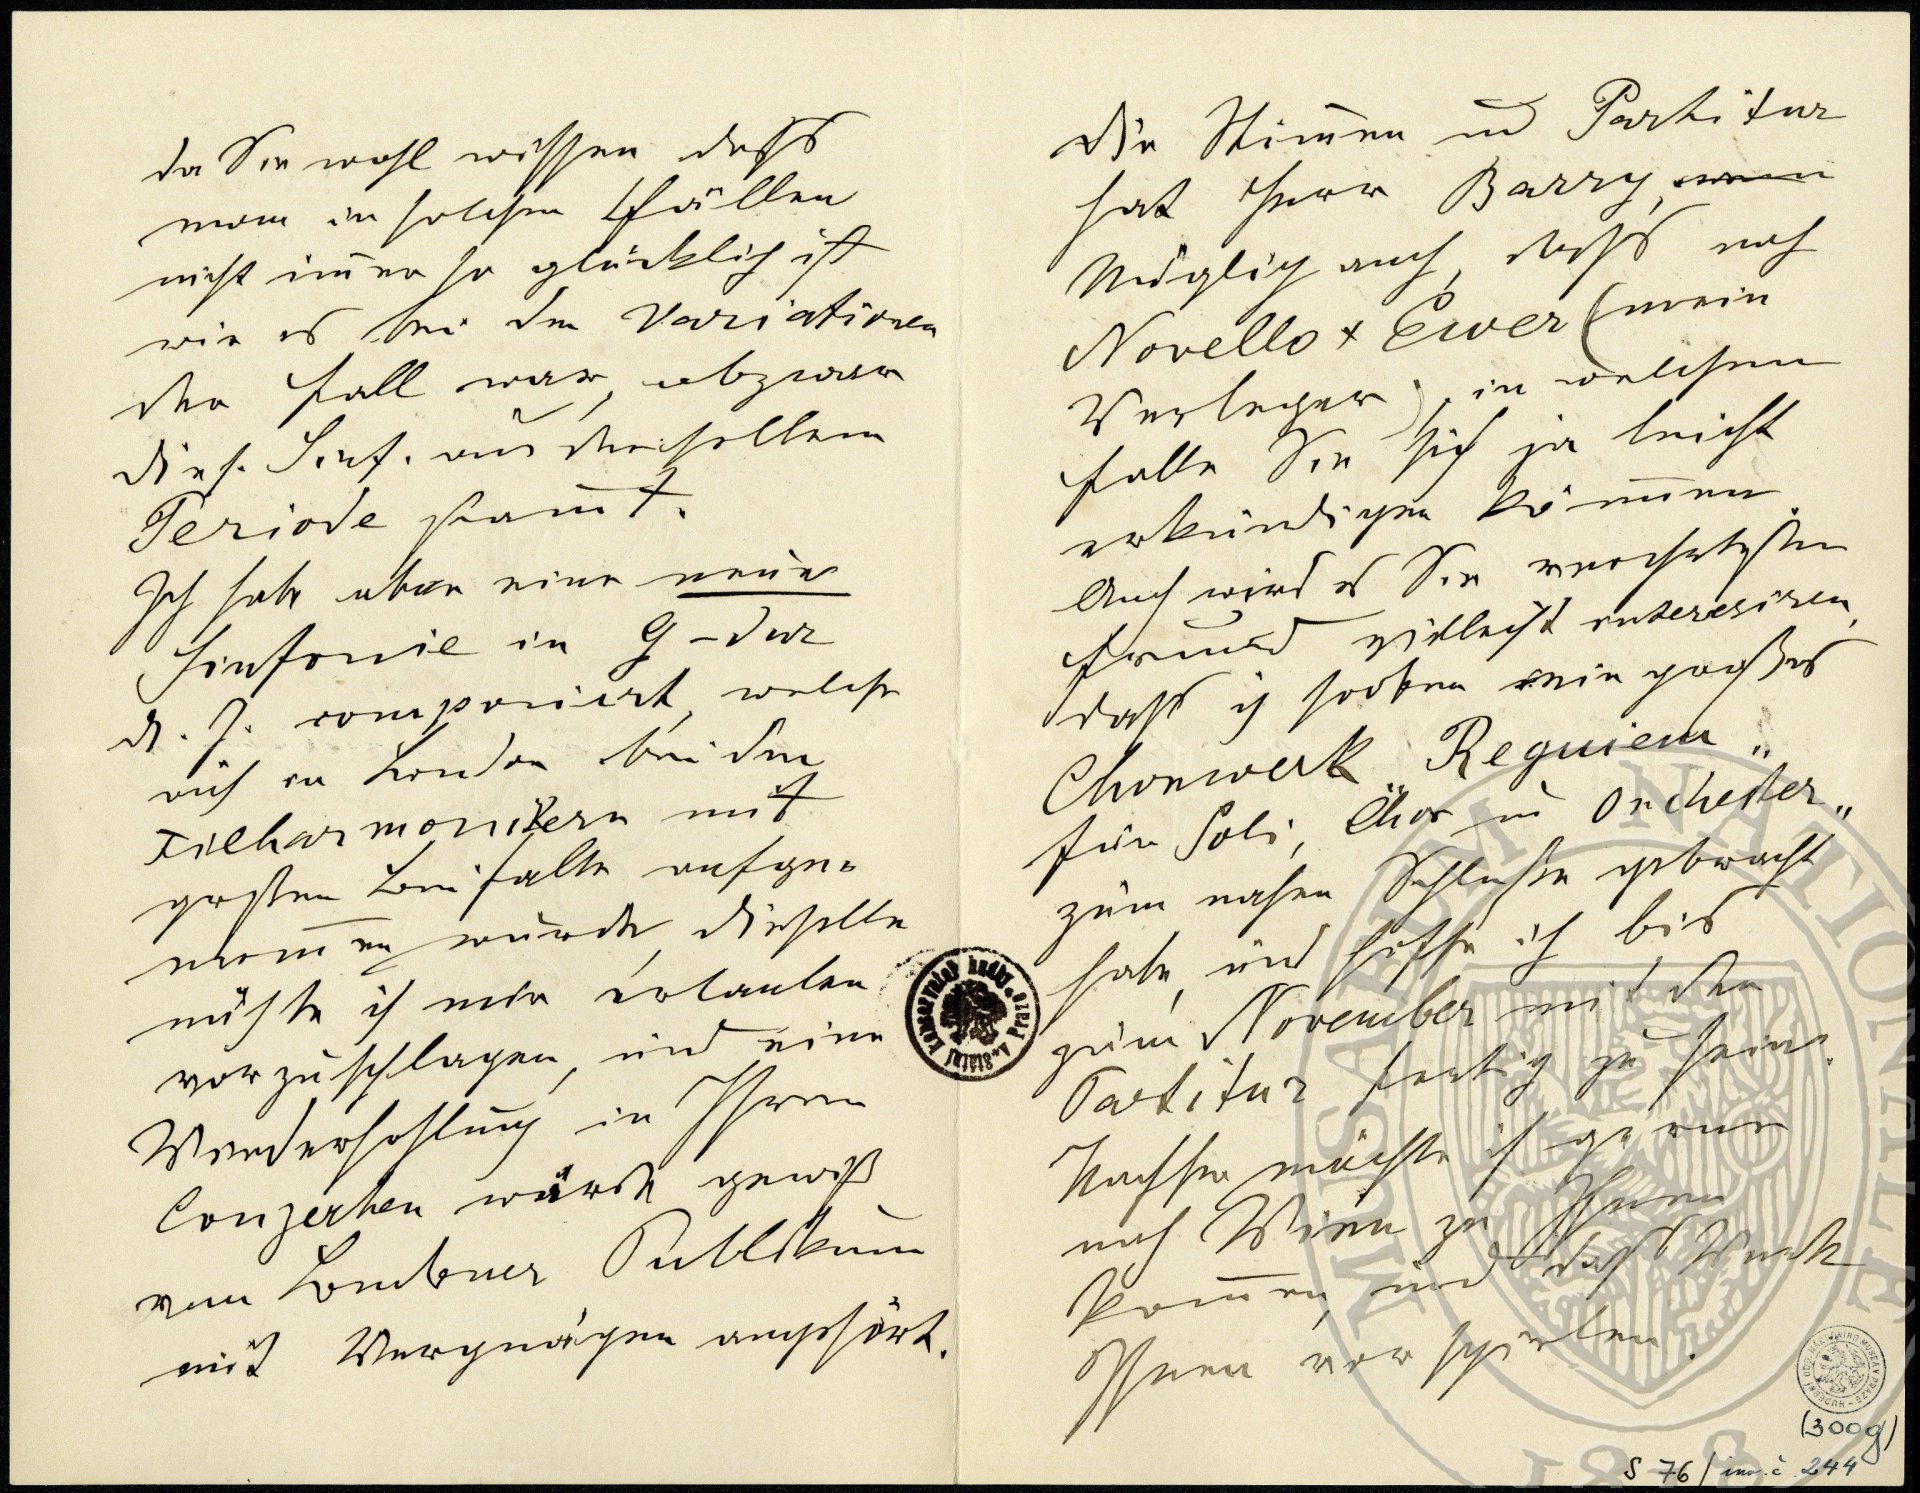 da Sie wohl wissen dass
man in solchen Fällen
nicht immer so glücklich ist
wie es bei den Variationen
der Fall war, obzwar
dies. Sinf. aus derselben
Periode stammt.
Ich habe aber eine neue
Sinfonie in G-dur
d. J. componiert, welche
auch in London bei den
Filharmonikern mit
großen Beifalle aufge-
nommen wurde, dieselbe
möchte ich mir erlauben
vorzuschlagen, und eine
Wiederhohlung in Ihren
Conzerten würde gewiß
vom Londoner Publikum
mit Vergnügen angehört.
Die Stimmen und Partitur
hat Herr Barry,
Möglich auch, dass noch
Novello + Ewer (mein
Verleger), in welchem
Falle Sie sich ja leicht
erkundigen können.
Auch wird es Sie verehrtester
Freund vielleicht interesiren,
dass ich soeben ein großes
Chorwerk „Requiem"
für Soli, Chor u Orchester"
zum nahen Schlusse gebracht
habe, und hoffe ich bis
zum November mit der
Partitur fertig zu sein.
Nachher möchte ich gerne
nach Wien zu Ihnen
kommen, und das Werk
Ihnen vorspielen.
(300g)
S 76/inv. č 244
MUSAEUM NATIONALE
1818